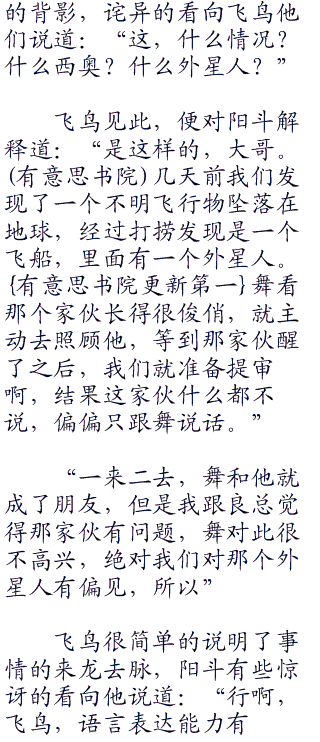 的背影，诧异的看向飞鸟他
们说道：“这，什么情况？
什么西奥？什么外星人？”
飞鸟见此，便对阳斗解
释道：“是这样的，大哥。
(有意思书院)几天前我们发
现了一个不明飞行物坠落在
地球，经过打捞发现是一个
飞船，里面有一个外星人。
{有意思书院更新第一}舞看
那个家伙长得很俊俏，就主
动去照顾他，等到那家伙醒
了之后，我们就准备提审
啊，结果这家伙什么都不
说，偏偏只跟舞说话。”
“一来二去，舞和他就
成了朋友，但是我跟良总觉
得那家伙有问题，舞对此很
不高兴，绝对我们对那个外
星人有偏见，所以”
飞鸟很简单的说明了事
情的来龙去脉，阳斗有些惊
讶的看向他说道：“行啊，
飞鸟，语言表达能力有